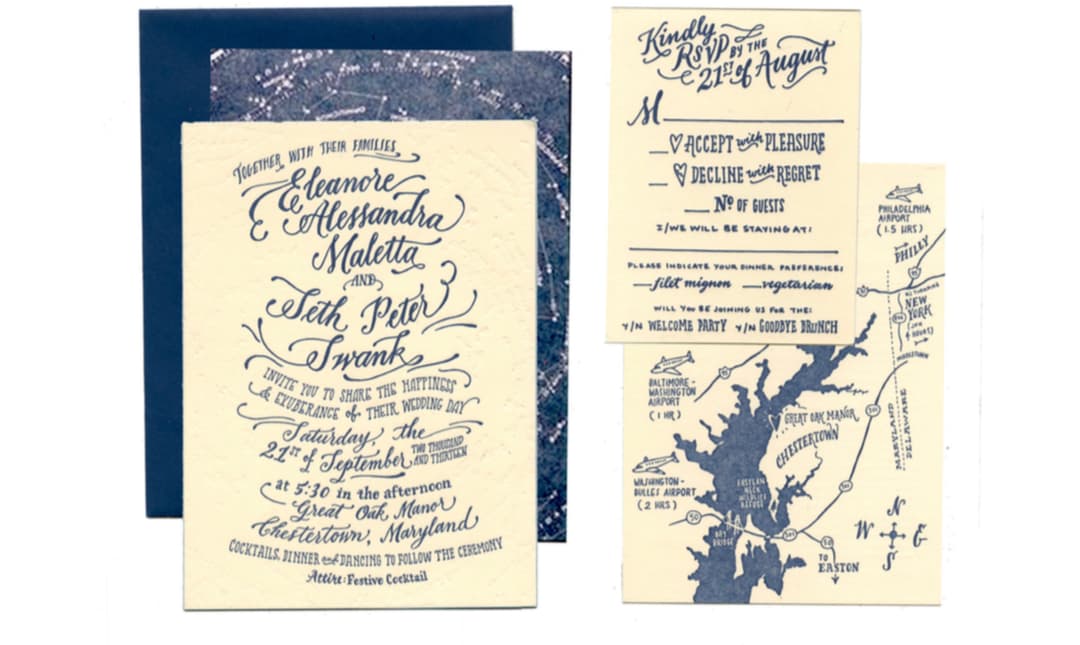 TOGETHER WITH THEIR FAMILIES
Eleanore
Alessandra
Maletta
AND
Seth Peter
Swank
INVITE YOU TO SHARE THE HAPPINESS
& EXUBERANCE of THEIR WEDDING DAY
Saturday, the
21ST of September TWO THOUSAND AND THIRTEEN
at 5:30 in the afternoon
Great Oak Manor
Chestertown, Maryland
COCKTAILS, DINNER and DANCING TO FOLLOW THE CEREMONY
Attire: Festive Cocktail
Kindly
RSVP BY THE
21ST of August
M
ACCEPT with PLEASURE
DECLINE with REGRET
No OF GUESTS
I/WE WILL BE STAYING AT:
PLEASE INDICATE YOUR DINNER PREFERENCE:
filet mignon vegetarian
WILL YOU BE JOINING US FOR THE:
Y/N WELCOME PARTY Y/N GOODBYE BRUNCH
PHILADELPHIA
AIRPORT
(1.5 HRS)
PHILLY
95
NEW
YORK
HOURS)
MIDDLETOWN
95
BALTIMORE-
WASHINGTON
AIRPORT
(1 HR)
301
GREAT OAK MANOR
CHESTERTOWN
MARYLAND
DELAWARE
WASHINGTON-
DULLES AIRPORT
(2 HRS)
EASTERN
NECK
WILDLIFE
REFUGE
301
50
BAY
BRIDGE
301
50
TO
EASTON
N
W E
S